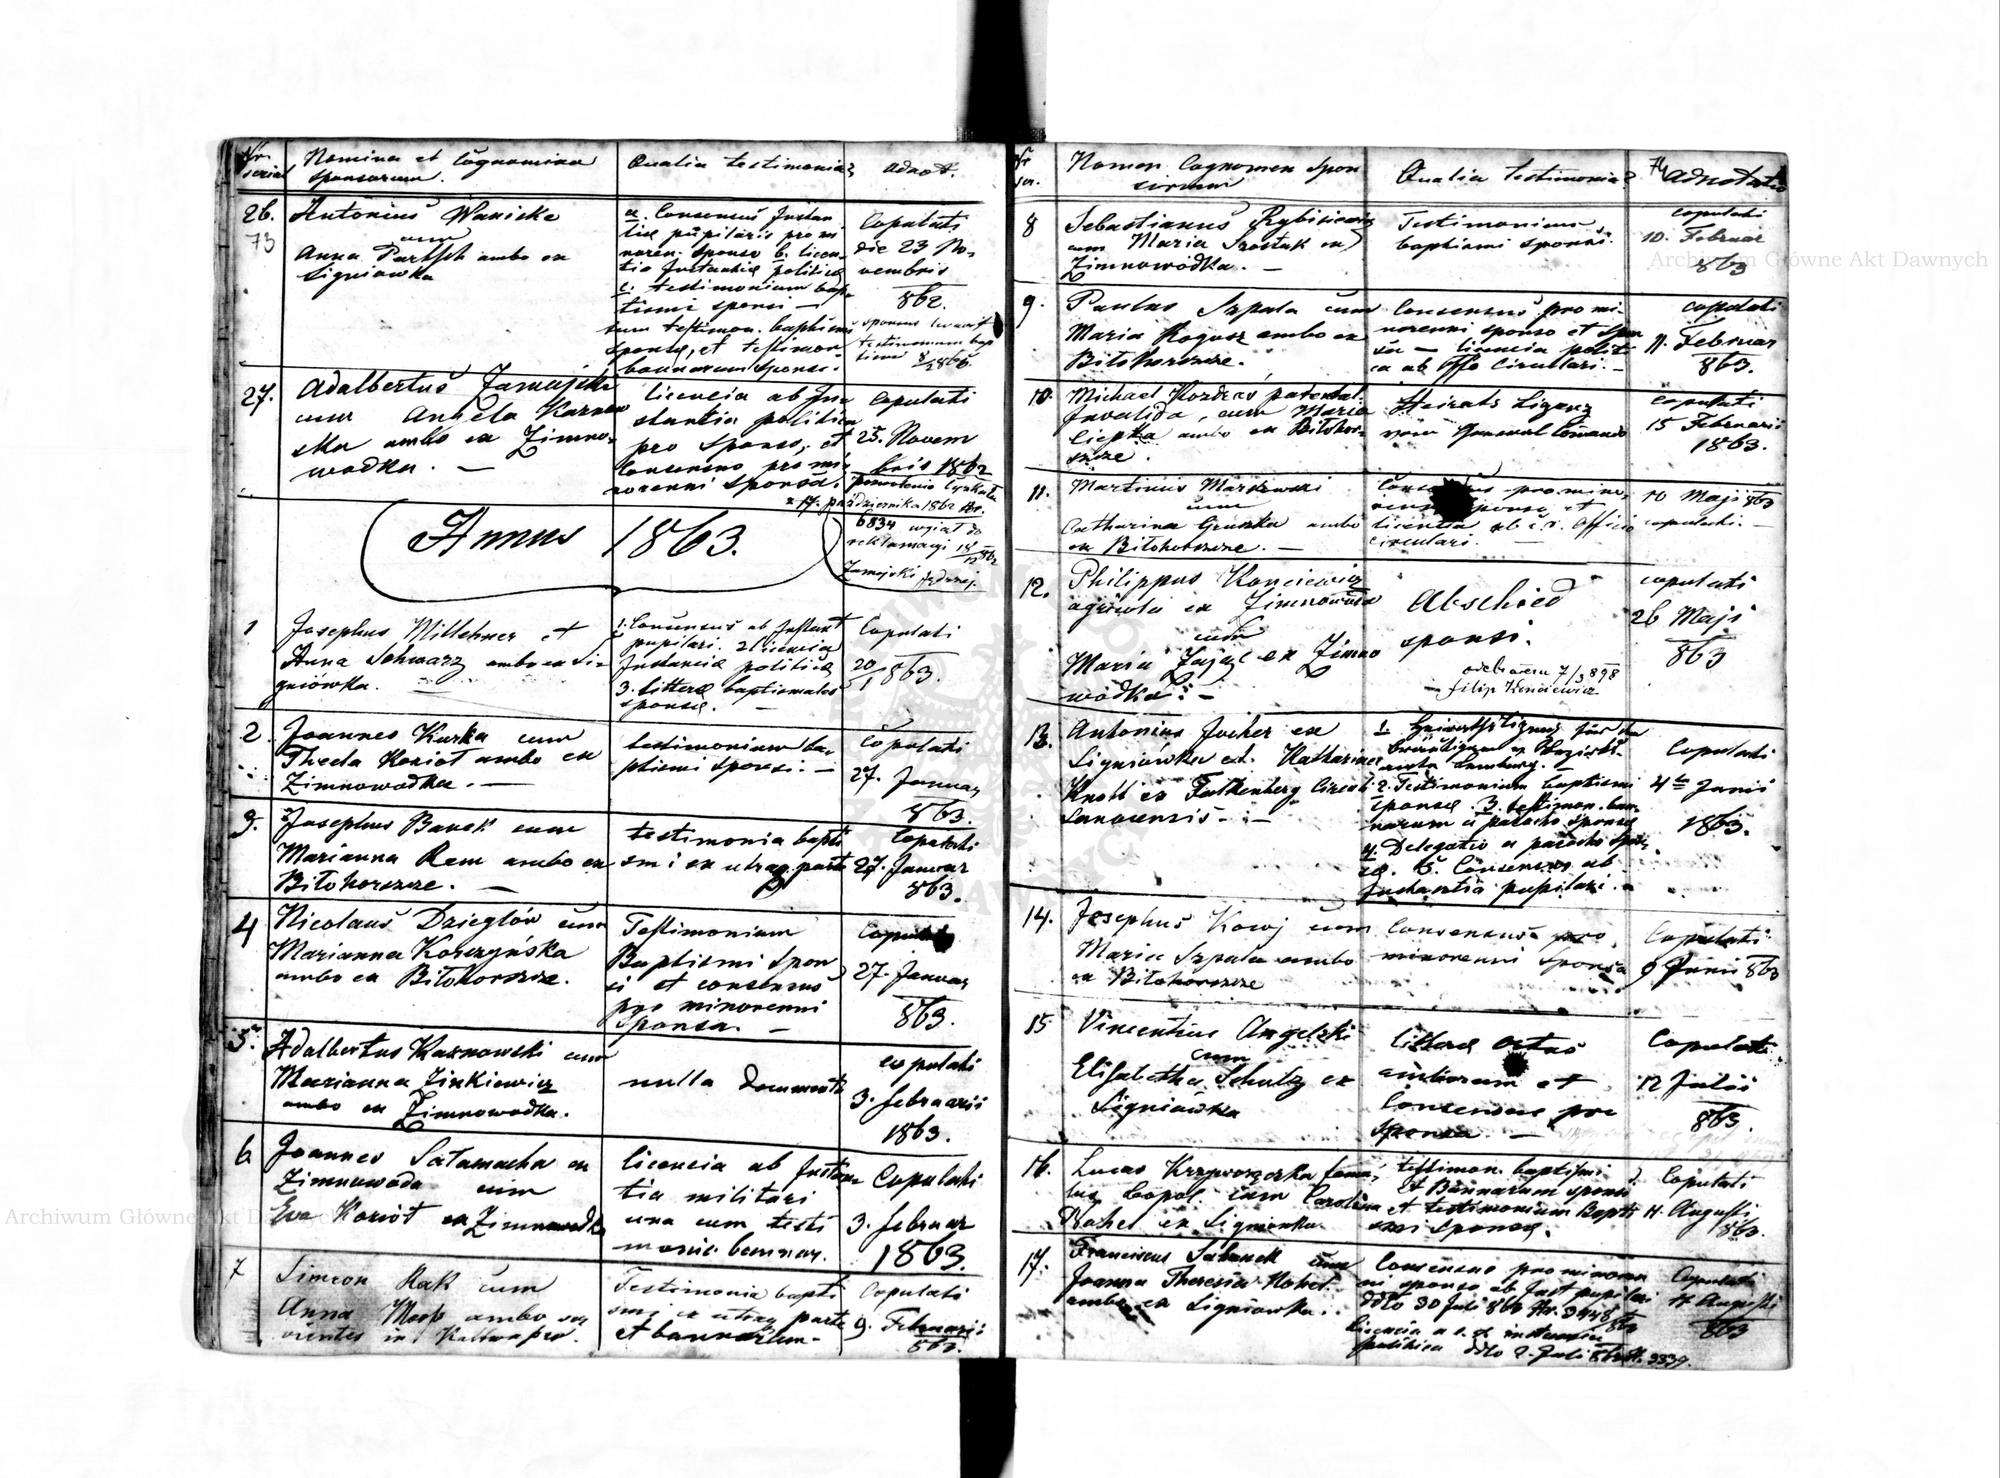 Nr. serial
Nomina et Cognomina
sponsorum.
Qualia testimonia
Adnot.
26.
73
Antonius Wanicke
cum
Anna Partsch ambo ex
Signiowka
a. Consensus Instan
tiae pupilaris pro mi
noren. sponso b. licen
tia Instantiae politicae
c. testimonium bap
tismi sponsi —
cum testimon. baptismi
sponsae, et testimon
bannorum sponsi.
Copulati
die 23 No
vembris
862.
sponsus levavit
testimonium bap
tismi
27.
Adalbertus Zamojski
cum Angela Karnow
ska ambo ex Zimno
wodka. —
licencia ab In
stantia politica
pro sponso, et
Consensus pro mi
norenni sponsa.
Copulati
25. Novem
bris 1862
z 17. października 1862
6834 wyjął do
reklamacji
Zamojski
Annus 1863.
1
Josephus Millehner et
Anna Schwarz ambo ex Si
gniówka.
1. Consensus ab Instant
pupilari. 2 licencia
Instancia politica
3. litterae baptismales
sponsae. —
Copulati
20/1 863.
2.
Joannes Kurka cum
Thecla Koriot ambo ex
Zimnowodka. —
testimonium ba
ptismi sponsi. —
Copulati
27. Januar
863.
3.
Josephus Banek cum
Marianna Rem ambo ex
Biłohorszcze. —
testimonia bapti
smi ex utraq parte
Copulati
27. Januar
863.
4
Nicolaus Dzieglów cum
Marianna Korczyńska
ambo ex Biłohorszcze.
Testimonium
Baptismi spon
si et consensus
pro minorenni
sponsa. —
Copulati
27. Januar
863.
5.
Adalbertus Karnowski cum
Marianna Zinkiewicz
ambo ex Zimnowodka.
nulla documenta
copulati
3. februarii
1863.
6
Joannes Sałamacha ex
Zimnawoda cum
Eva Koriót ex Zimnawodka
licencia ab Instan
tia militari
una cum testi
monio bannor.
Copulati
3. februar
1863.
7
Simeon Rak cum
Anna ambo ser
vientes in
Testimonia bapti
smi ex utraq parte
et bannorum.
Copulati
9. Februarii
863.
Nr ser.
Nomen Cognomen Spon
sorum
Qualia testimonia
74
Adnotatio
8
Sebastianus Rybisiewicz
cum Maria Szostak ex
Zimnowódka. —
Testimonium
baptismi sponsi.
copulati
10. Februar
863
9.
Paulus Szpala cum
Maria Rogusz ambo ex
Biłohorszcze.
Consensus pro mi
norenni sponso et spon
sa — licencia polit
ca ab Offo Circulari. —
copulati
11. Februar
863.
10.
Michael patental
Invalida, cum Maria
Ciepka ambo ex Biłohor
szcze.
Heirats Lizenz
vom General Comando
copulati
15 Februarii
1863.
11.
Martinus Marszewski
cum
Catharina Gruszka ambo
ex Biłohorszcze. —
Consensus pro mino
renni sponso et
licentia ab c. r. Officio
circulari. —
10 Maji 863
copulati. —
12.
Philippus Konciewicz
agricola ex Zimnowoda
cum
Maria Zając ex Zimno
wodka. —
Abschied
sponsi.
odebrałem 7/3 898
Filip Konciewicz
copulati
26 Maji
863
13.
Antonius Jocher ex
Signiówka et Katharina
Knoll ex Falkenberg Circuli
Sanocensis. —
1. Heirathslizenz für den
Bräutigam v. Bezirks
amte Lemberg. —
2. Testimonium baptismi
sponsae. 3. testimon. ban
norum a parocho sponsae
4. Delegatio a parocho spon
sae. 5. Consensus ab
Instantia pupilari.
Copulati
4to Junii
1863.
14.
Josephus Kowj cum
Maria Szpala ambo
ex Biłohorszcze
Consensus pro
minorenni sponsa
Copulati
9 Junii 863
15
Vincentius Angelski
cum
Elisabetha Schulz ex
Signiówka
litterae ortus
amborum et
Consensus pro
sponsa. —
Copulati
12 Julii
863.
16.
Lucas Krzywoszczka famu
lus cum Carolina
Nohel ex Signiowka.
testimon. baptismi
et Bannorum sponsi
et testimonium Bapti
smi sponsae.
Copulati
4. Augusti
863.
17.
Franciscus Sabanek cum
Joanna Theresia Nohel
ambo ex Signiowka.
Consensus pro minoren
ni sponso ab Inst pupilari
ddto 30 Juli 863 Nr. 3448/863
licencia a c. r. instancia
politica ddto 2. Juli 863 N. 3339.
Copulati
4 Augusti
863
Archiwum Główne Akt Dawnych
Archiwum Główne Akt Dawnych